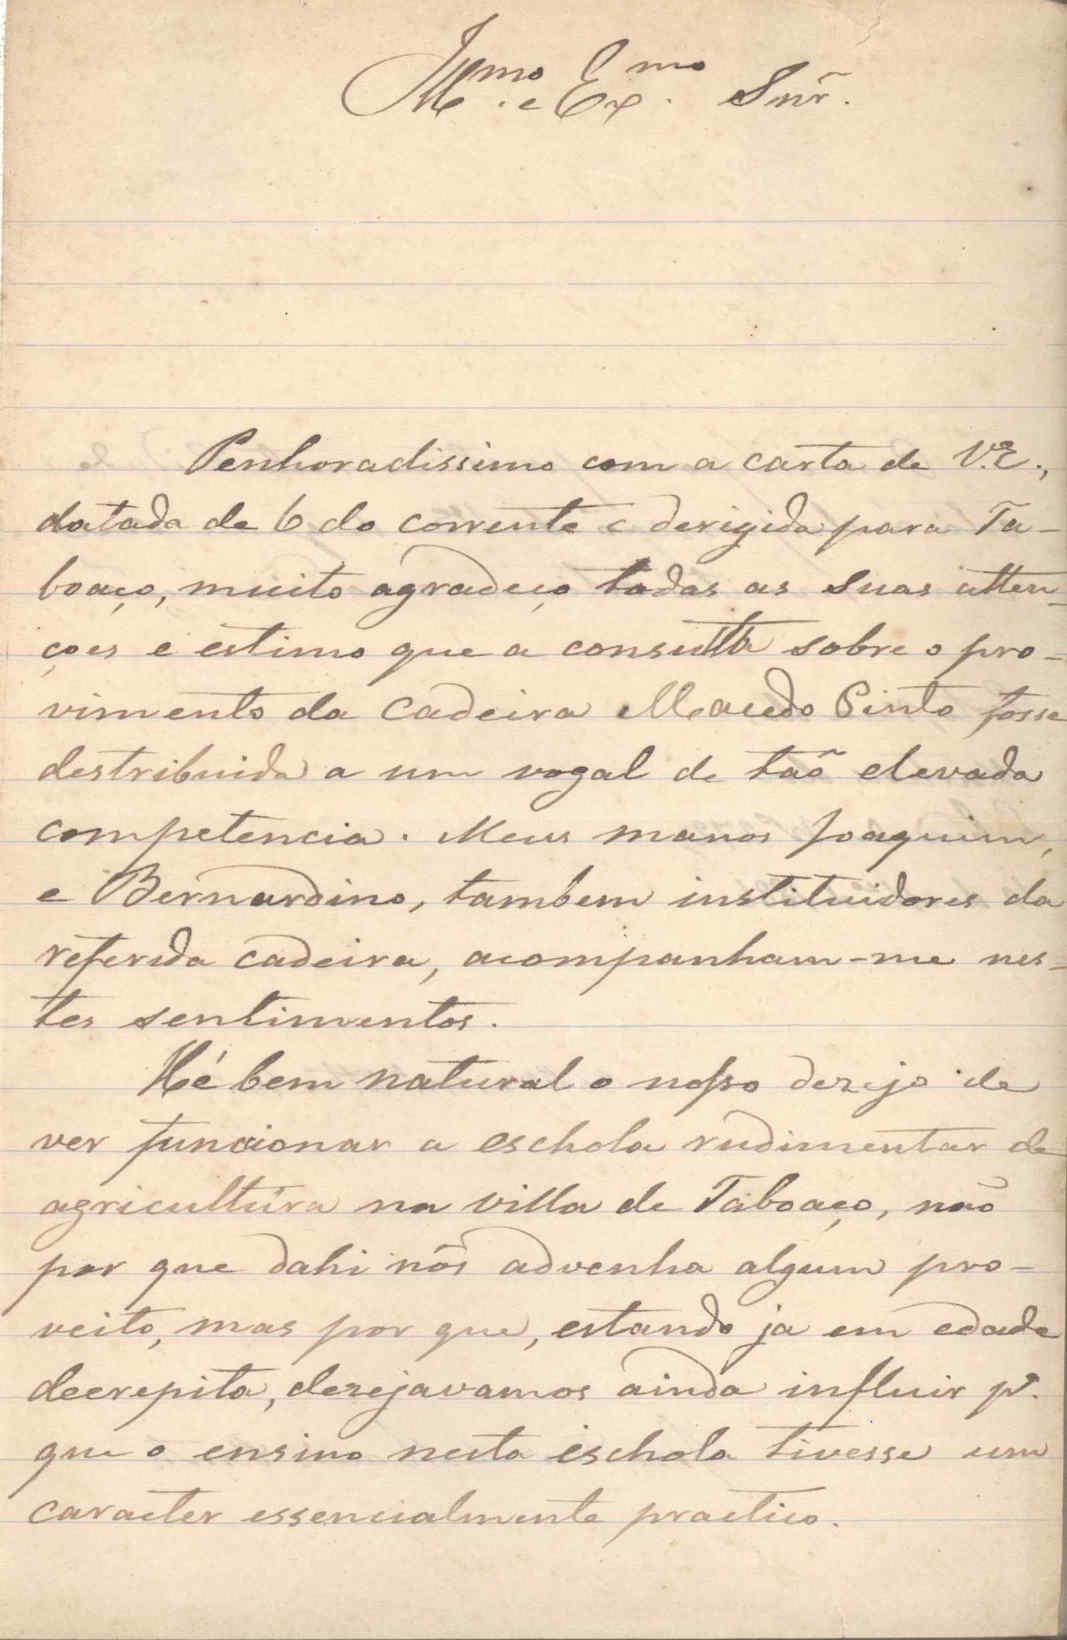 Illmo. e Exmo. Snr̃.
Penhoradissimo com a carta de V.E.,
datada de 6 do corrente e derigida para Ta-
boaço, muito agradeço todas as suas atten-
ções e estimo que a consulta sobre o pro-
vimento da cadeira Macedo Pinto fosse
destribuida a um vogal de taõ elevada
competencia. Meus manos Joaquim,
e Bernardino, tambem instituidores da
referida cadeira, acompanham-me nes-
tes sentimentos.
Hé bem natural o nosso dezejo de
ver funccionar a eschola rudimentar de
agricultura na villa de Taboaço, não
por que dahi nós advenha algum pro-
veito, mas por que, estando ja em edade
decrepita, dezejavamos ainda influir pª.
que o ensino nesta eschola tivesse um
caracter essencialmente practico.